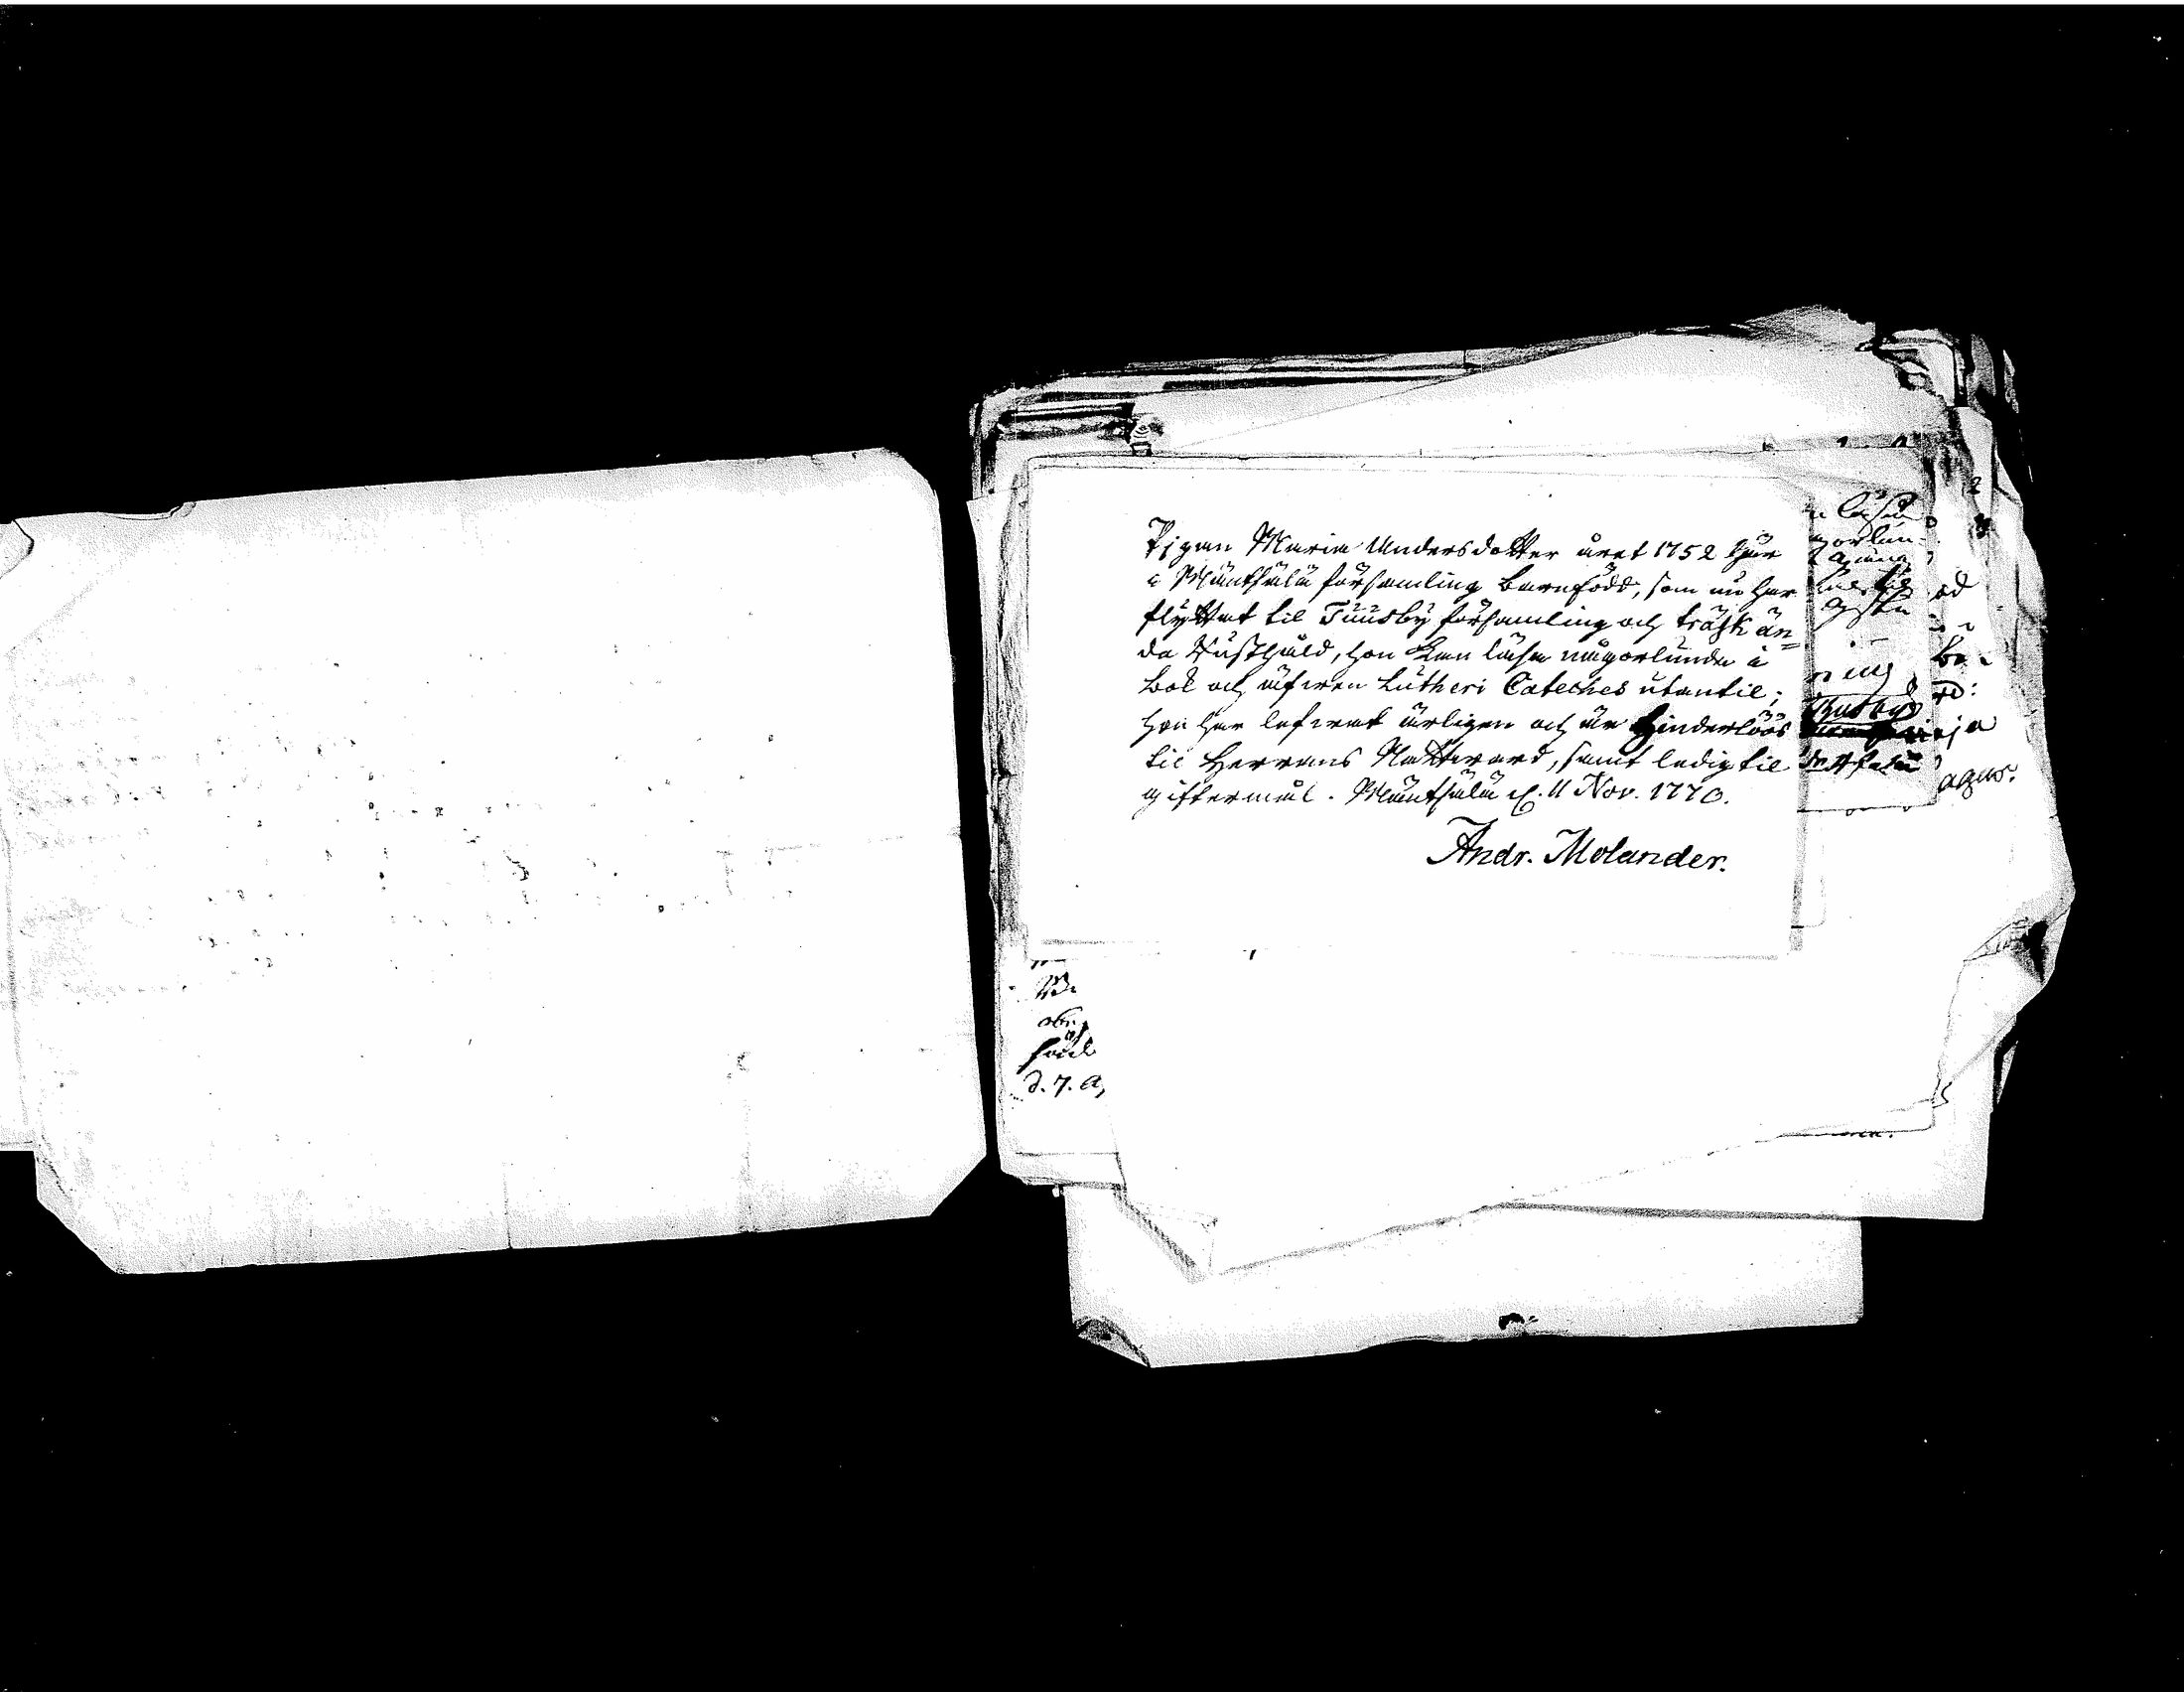 Pigan Maria Andersdotter året 1752 här
i Mäntsälä församling barnfödd, som nu har
flyttat til Tuusby församling och träsk än=
da Rusthåld, hon kan läsa någorlunda i
bok och äfwen Lutheri Cateches utantil;
hon har lefwat ärligen och är hinderlöös
til Herrans Nattward, samt ledig til
giftermål. Mäntsälä d. 11 Nov. 1770.
Andr. Molander.
d. 7.